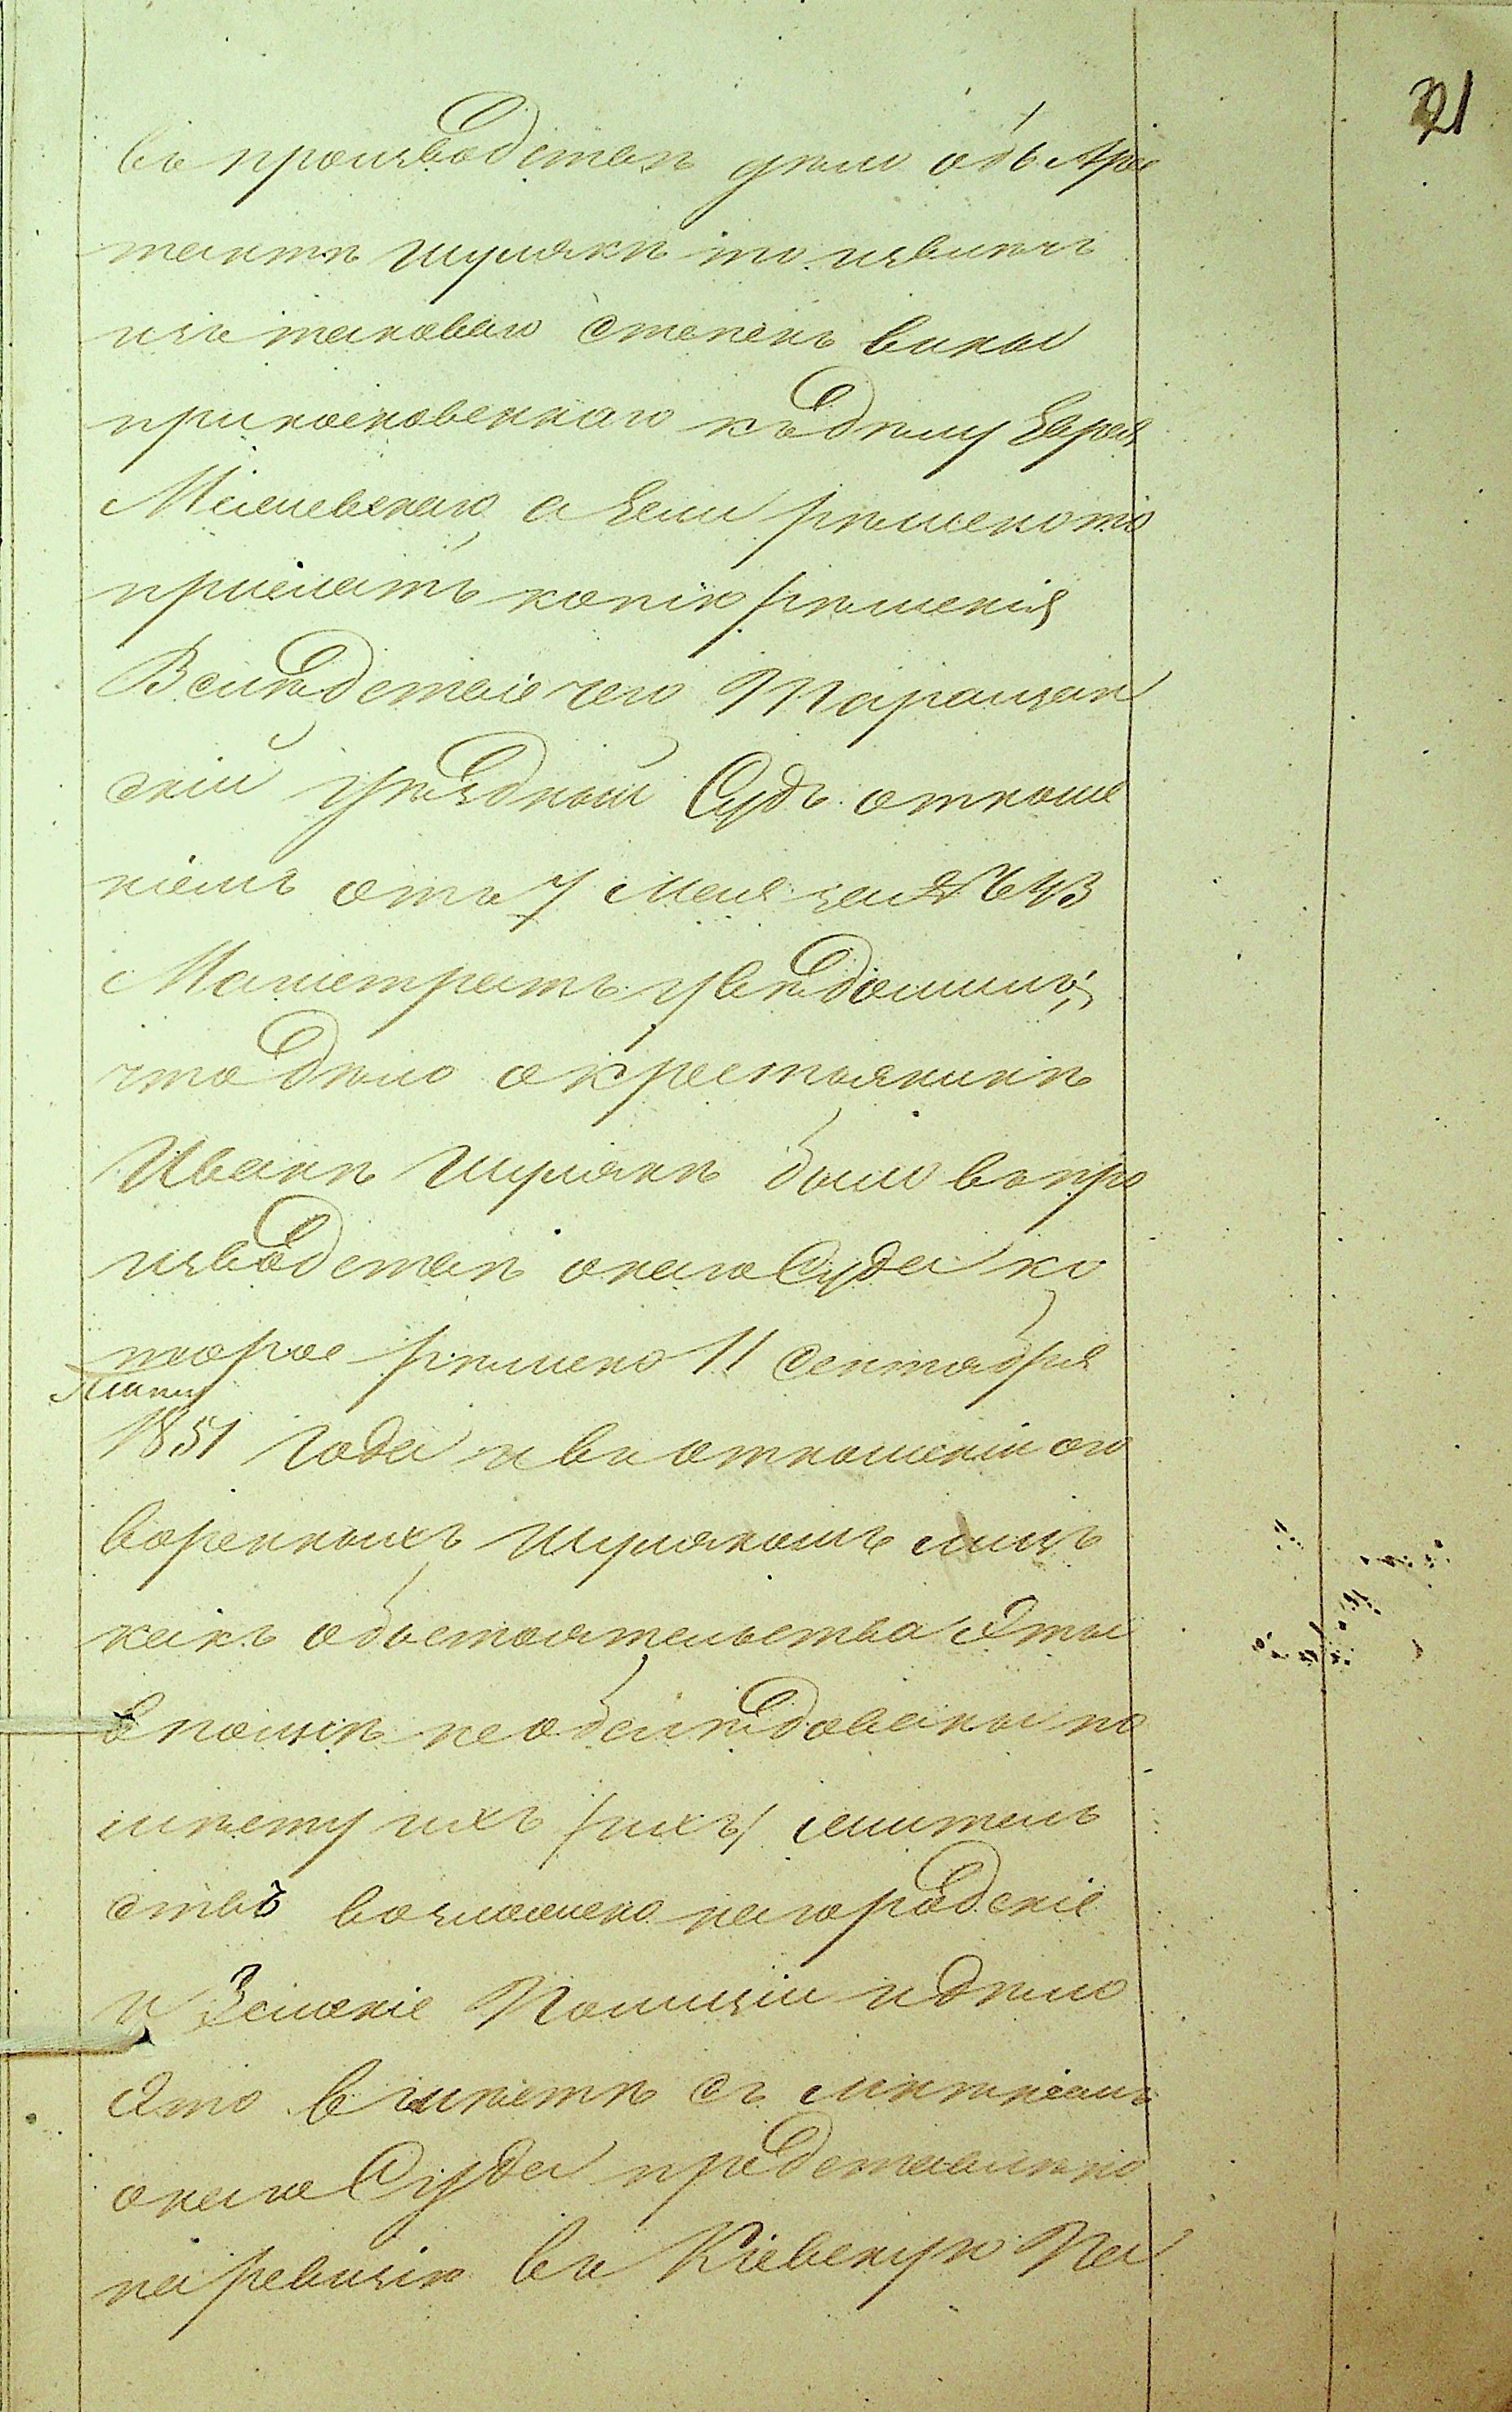 21
въ производствѣ дѣло объ Арес
тантѣ Шулякѣ то извлечь
изъ таковаго степень вины
прикосновеннаго къ дѣлу Еврея
а Если рѣшено то
прислать копію рѣшенія
Вслѣдствіе чего Таращан
скій Уѣздный Судъ отноше
ніемъ отъ 7 Мая за № 643
Магистратъ увѣдомилъ,
что дѣло о крестьянинѣ
Иванѣ Шулякѣ было въ про
изводствѣ онаго Суда ко
торое рѣшено 11 Сентября
1851 года и въ отношеніи ого
воренныхъ Шулякомъ лицъ
какъ обстоятельства Эты
вполнѣ не обслѣдованы по
мѣсту ихъ /ихъ/ жительс
ствъ возложено на городскіе
и Земскіе Полиціи и дѣло
Это вмѣстѣ съ мнѣніемъ
онаго Суда представлено
на ревизію въ Кіевскую Па